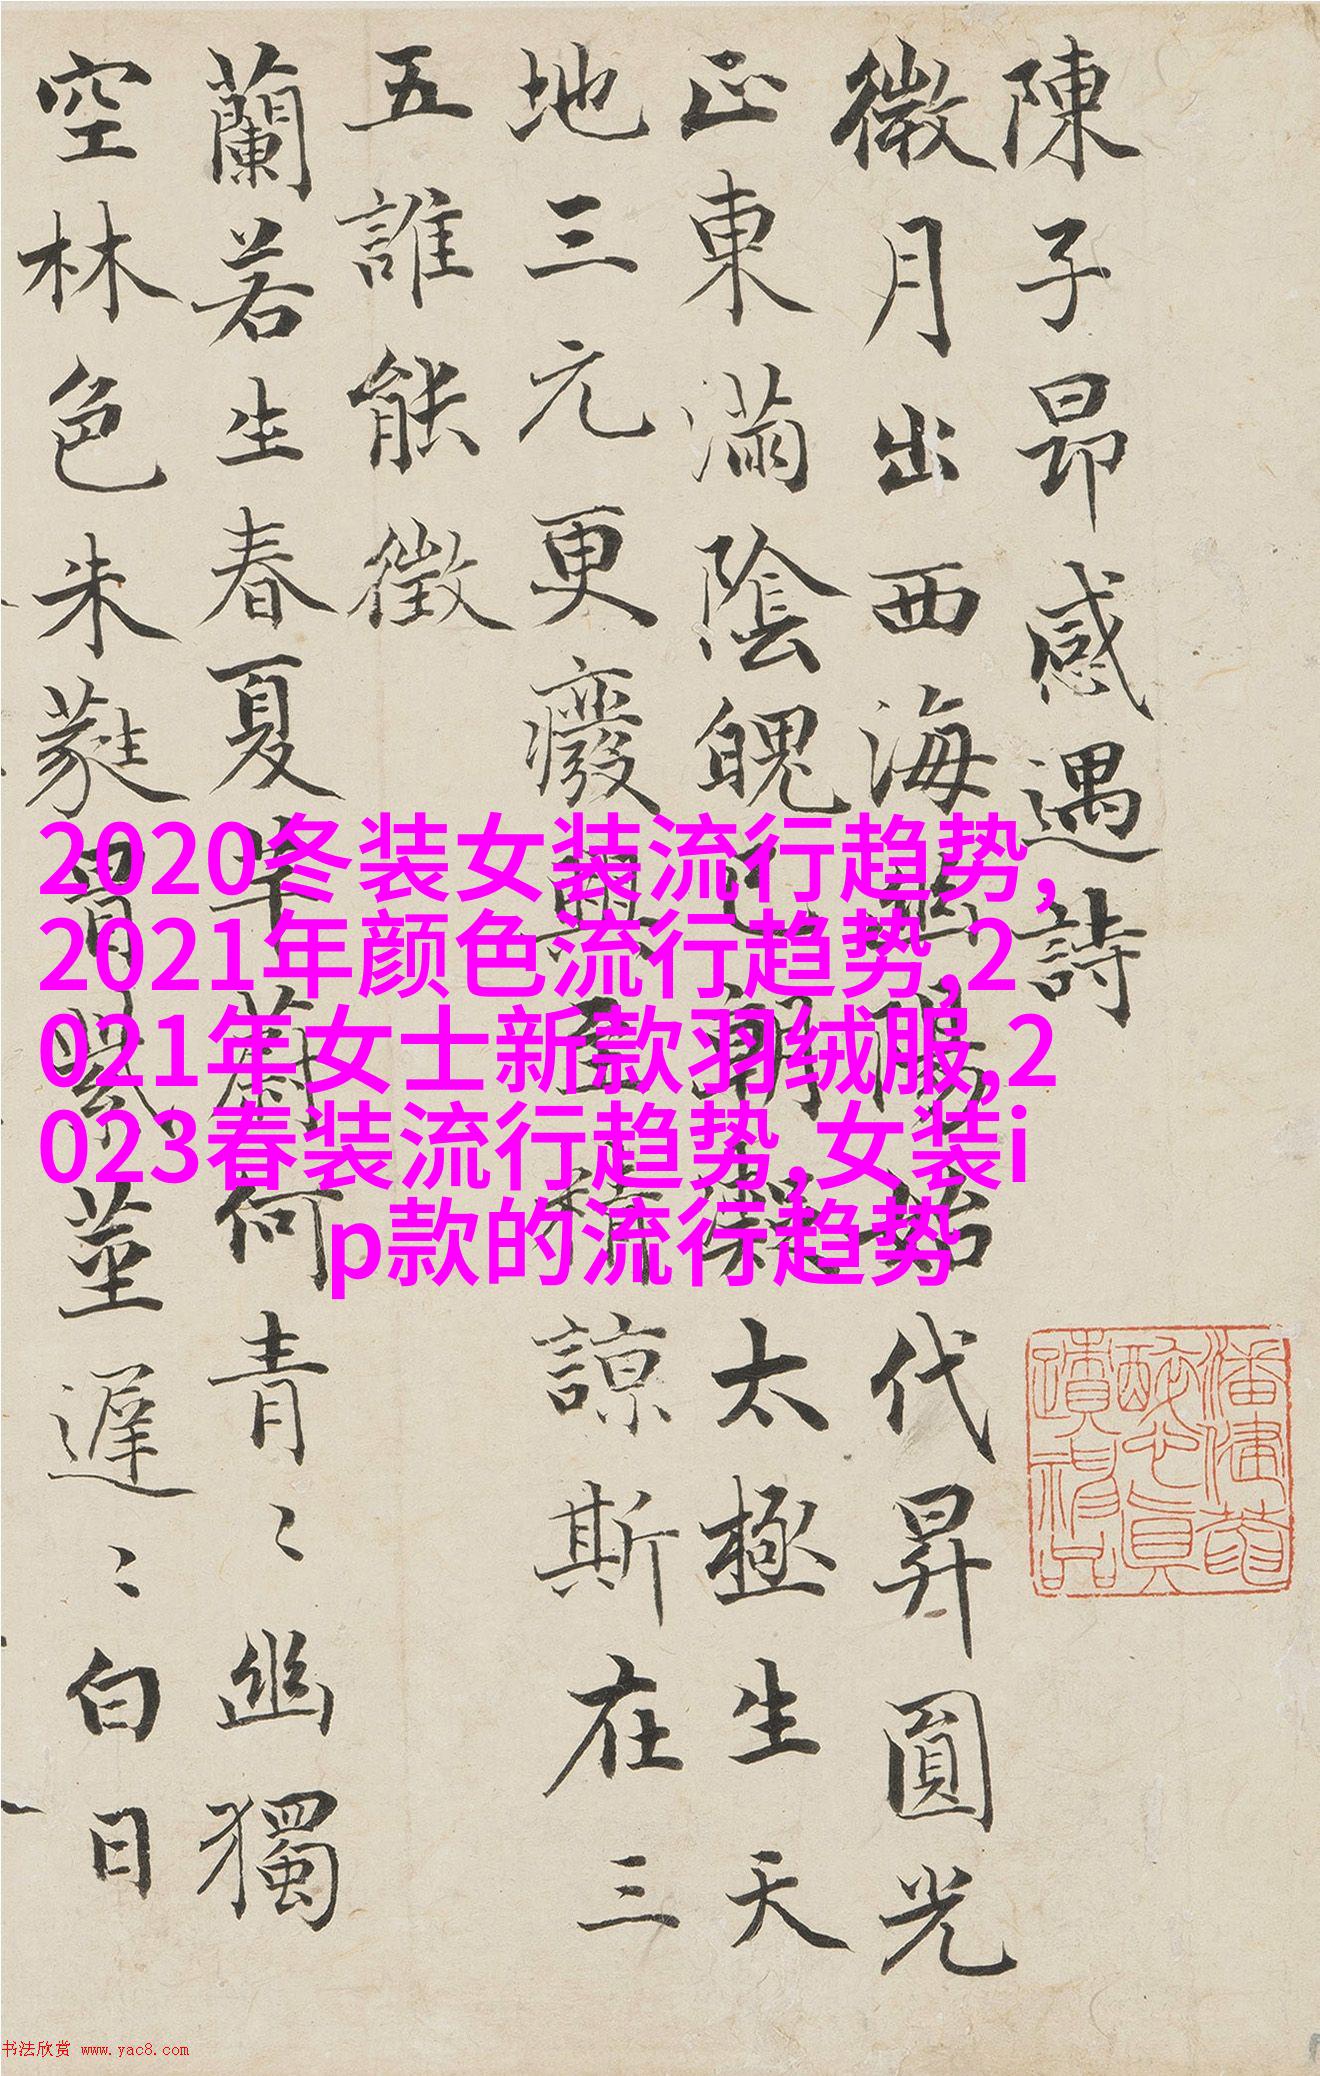 陳子昂感遇詩
微月出西海幽陽始代昇圓光
正東滿陰魄已朝凝太極生天
地三元更癈興至精諒斯在三
五誰能徵
蘭若生春夏芊蔚何青〻幽獨
空林色朱蕤冒紫莖遲〻白日
2020冬装女装流行趋势,
2021年颜色流行趋势,2
021年女士新款羽绒服,2
023春装流行趋势,女装i
p款的流行趋势
书法欣赏 www.yac8.com